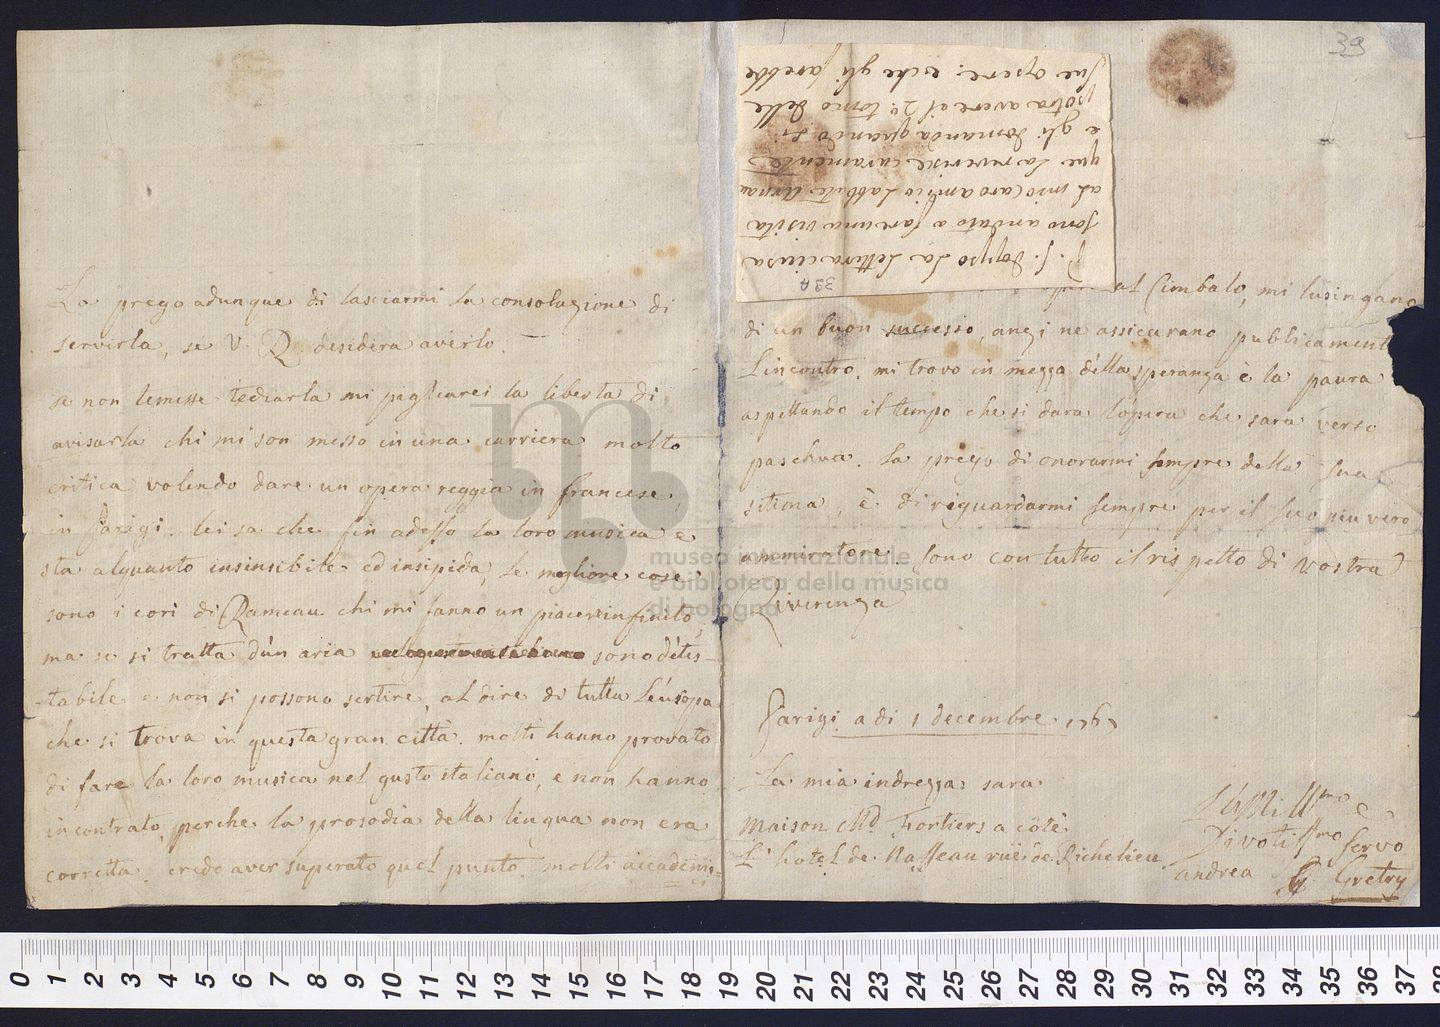 La prego adunque di lasciarmi la consolazione di
servirla, se V. R. desidera averlo.
se non temesse tediarla mi pigliarei la liberta di
avisarla chi mi son messo in una carriera molto
critica volendo dare un opera reggia in francese,
in Parigi. lei sa che fin adesso la loro musica e
sta alquanto insinsibile ed insipida, le megliore cose
sono i cori di Rameau chi mi fanno un piacer infinito,
ma se si tratta d'un aria sono détes-
tabile e non si possono sentire, al dire di tutta l'europa
che si trova in questa gran città. molti hanno provato
di fare la loro musica nel gusto italiano, e non hanno
incontrato, perche la prosodia della lingua non era
corretta. credo aver superato quel punto. molti accademi-
ci
39
P. S. doppo la lettura ciusa
sono andato a fare una visita
al mio caro amico Labbate Arnau
que la reverise caramente
e gli domanda quando si
potra avere il 2º tomo delle
sue opere: e che gli farebbe
39A
al Cimbalo, mi lusingano
di un buon successo, anzi ne assicurano publicament
L'incontro. mi trovo in mezza della speranza è la paura
aspettando il tempo che si dara l'opura che sara verso
paschua. La prego di onorarmi sempre della sua
sitima, è di riguardarmi sempre per il suo piu vero
ammiratore sono con tutto il rispetto di vostra
Riverenza
Parigi a di 1 decembre 1767
La mia indrezza sara
Maison Md Fortiers a côté
L'hotel de Nasseau rüe de Richelieu
Divotissmo servo
andrea G. Gretry
museo internazionale
e biblioteca della musica
di bologna
0 1 2 3 4 5 6 7 8 9 10 11 12 13 14 15 16 17 18 19 20 21 22 23 24 25 26 27 28 29 30 31 32 33 34 35 36 37 38